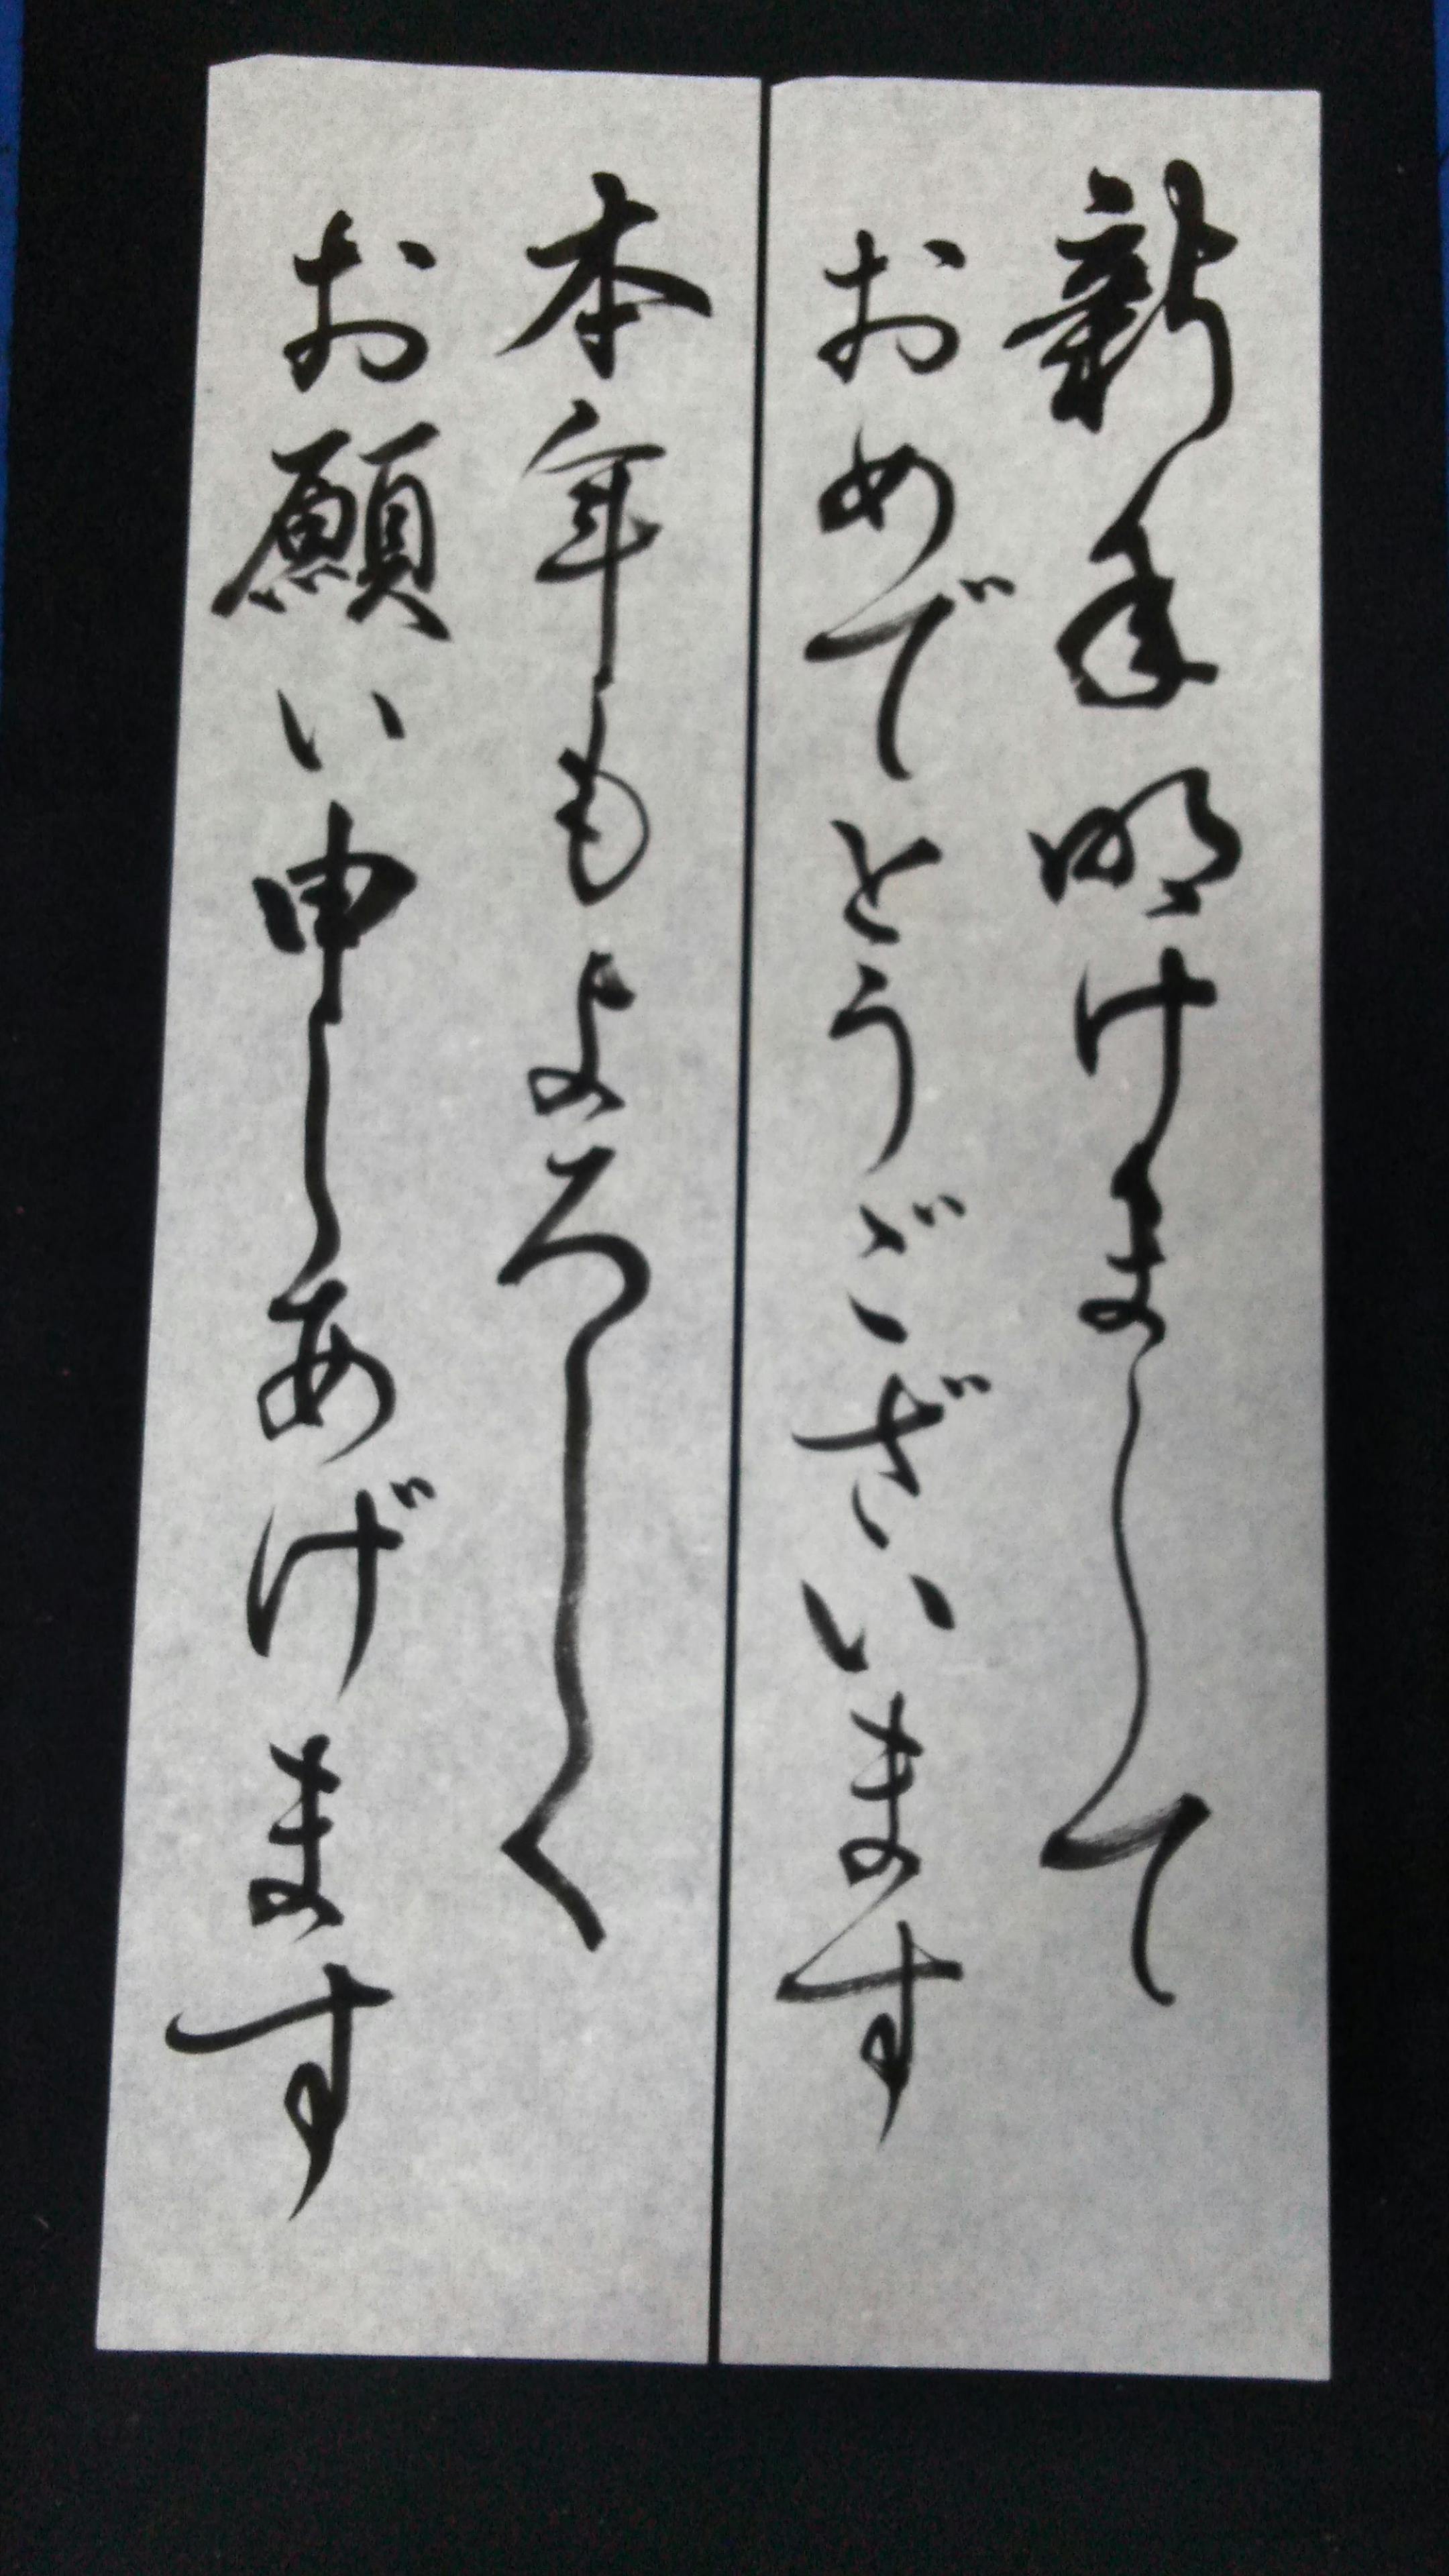 新年明けまして
おめでとうございます
本年もよろしく
お願い申しあげます